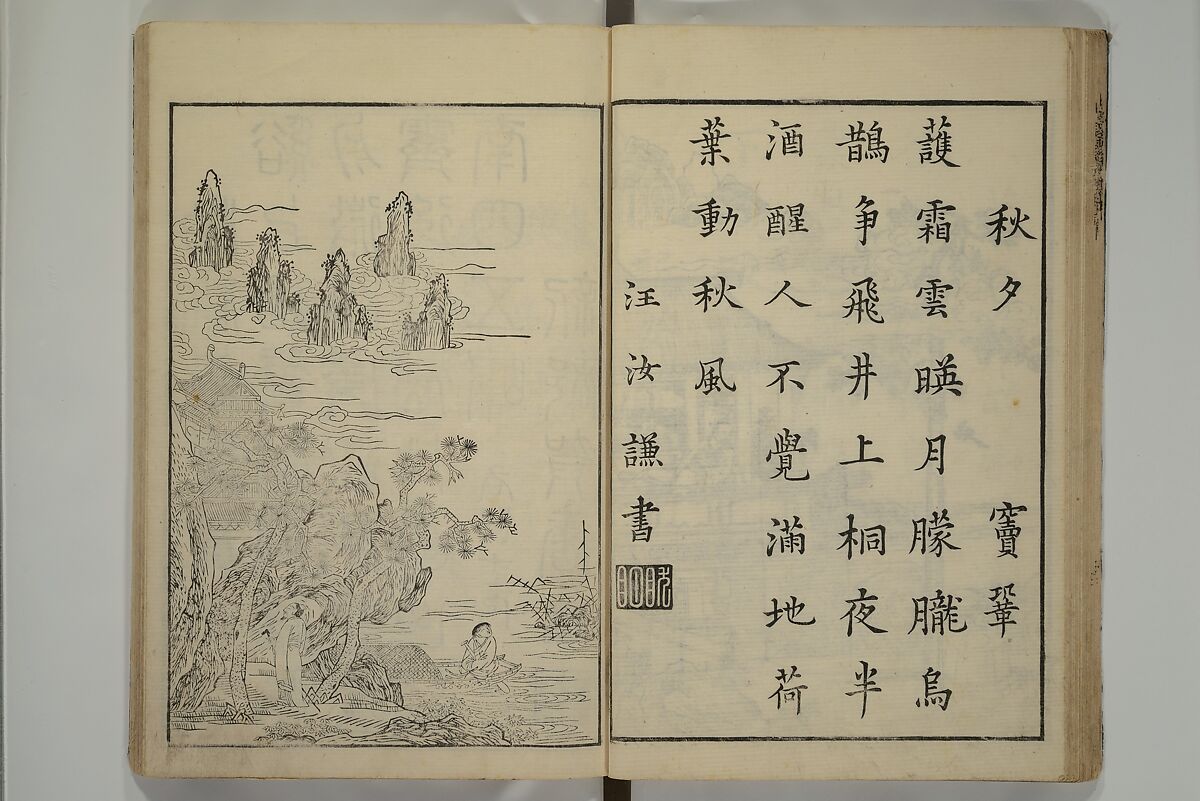 秋夕 竇鞏
䕶霜雲暎月朦朧烏
鵲争飛井上桐夜半
酒醒人不覺滿地荷
葉動秋風
汪汝謙書